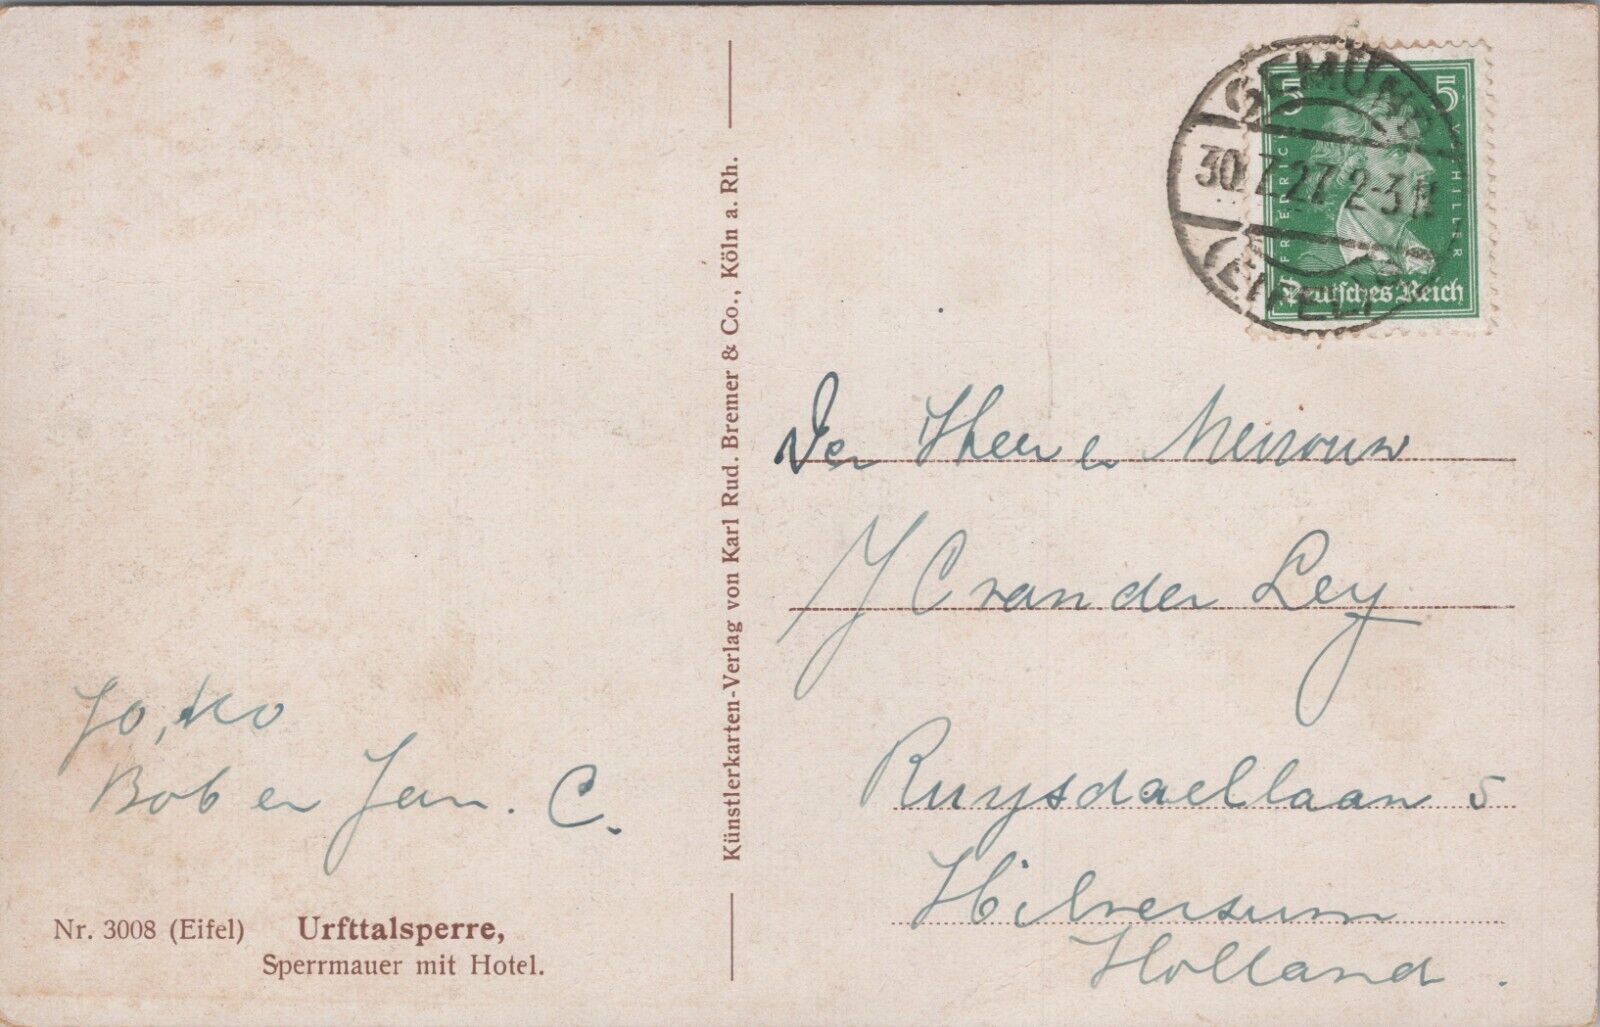 GEMÜND
30.7.27.2-3N
(EIFEL)
5 5
FRIEDRICH V SCHILLER
Deutsches Reich
Den Heer en Mevrouw
J C van der Ley
Ruysdaellaan 5
Hilversum
Holland.
Künstlerkarten-Verlag von Karl Rud. Bremer & Co., Köln a. Rh.
Jo, Ko
Bob en Jan. C.
Nr. 3008 (Eifel) Urfttalsperre,
Sperrmauer mit Hotel.